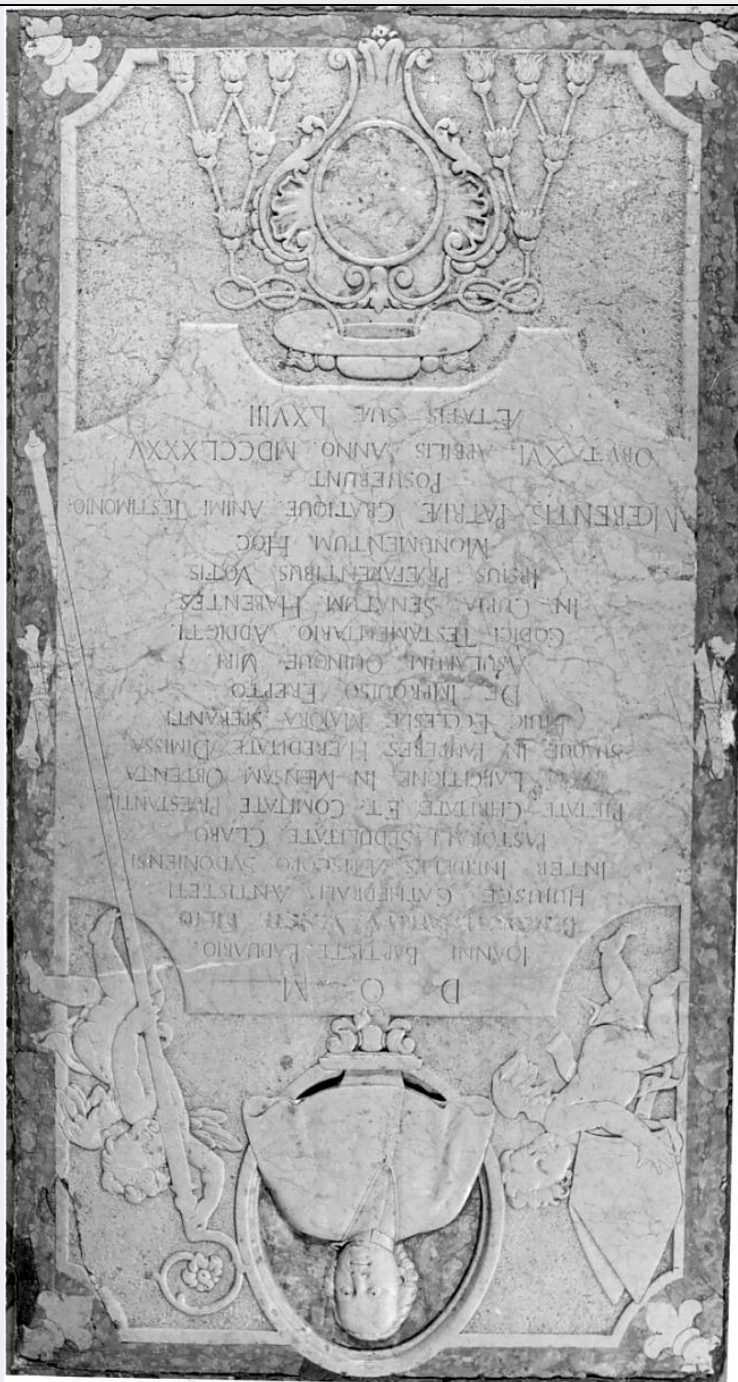 D O M
IOANNI BAPTISTE PADUARIO.
FILIO
HUIUSCE CATHEDRALI, ANTISTETI
INTER INFIDELES ÆPISCOPO SYDONIENSI
PASTORALI SEDULITATE CLARO
PIETATE CHRITATE ET COMITATE PRÆSTANTI
LARGITIONE IN MENSAM OBTENTA
SUAQUE IN PAUPERES HÆREDITATE DIMISSA
HUIC ECCLESIÆ MAIORA SPERANTI
DE IMPROUISO EREPTO
ASULARUM QUINQUE VIRI
CODICI TESTAMENTARIO ADDICTI.
IN CURIA SENATUM HABENTES
IPSIUS PRÆFARENTIBUS VOTIS
MONUMENTUM HOC
MŒRENTIS PATRIÆ GRATIQUE ANIMI TESTIMONIO:
POSUERUNT
OBYT XVI APRILIS ANNO MDCCLXXXV
ÆTATIS SUÆ LXVIII